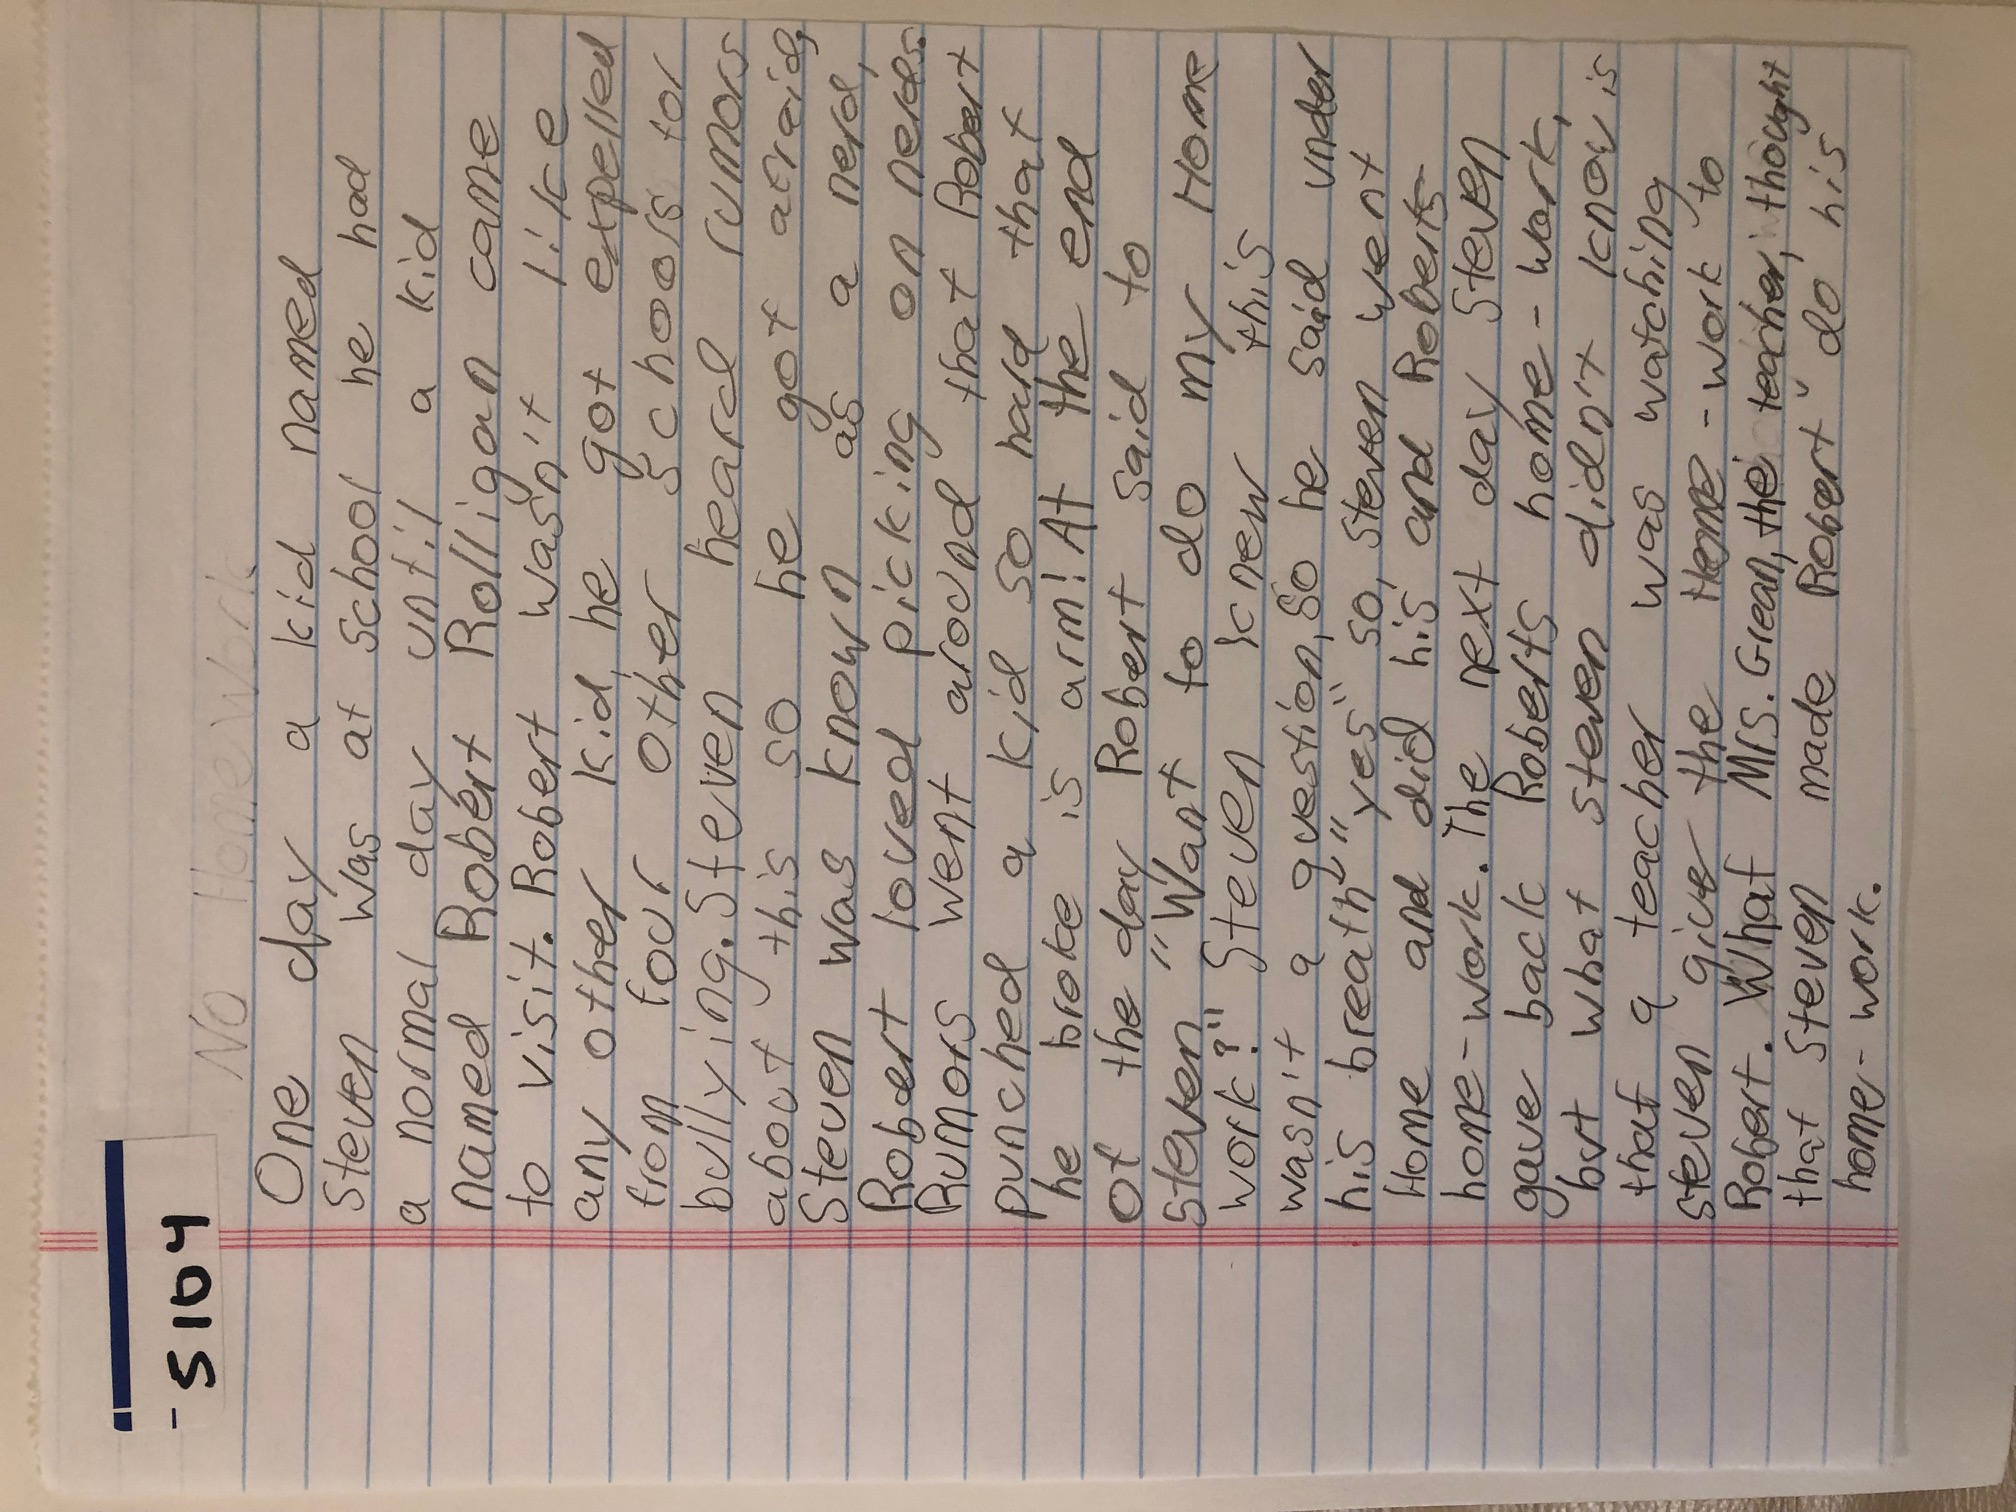 5104
No HomeWork
One day a kid named
Steven was at school he had
a normal day until a kid
named Robert Rolligan came
to visit. Robert wasn't like
any other kid, he got expelled
from four other schools for
bullying. Steven heard rumors
about this so he got afraid,
Steven was known as a nerd,
Robert loved picking on nerds.
Rumors went around that Robert
punched a kid so hard that
he broke is arm! At the end
of the day Robert said to
steven "Want to do my Home
work?" Steven knew this
wasn't a question, So he said under
his breath "yes" so, Steven went
Home and did his and Roberts
home-work. The next day Steven
gave back Roberts home-work,
but what steven didn't know is
that a teacher was watching
steven give the Home-work to
Robert. What Mrs. Grean, the teacher, thought
that Steven made Robert do his
home-work.